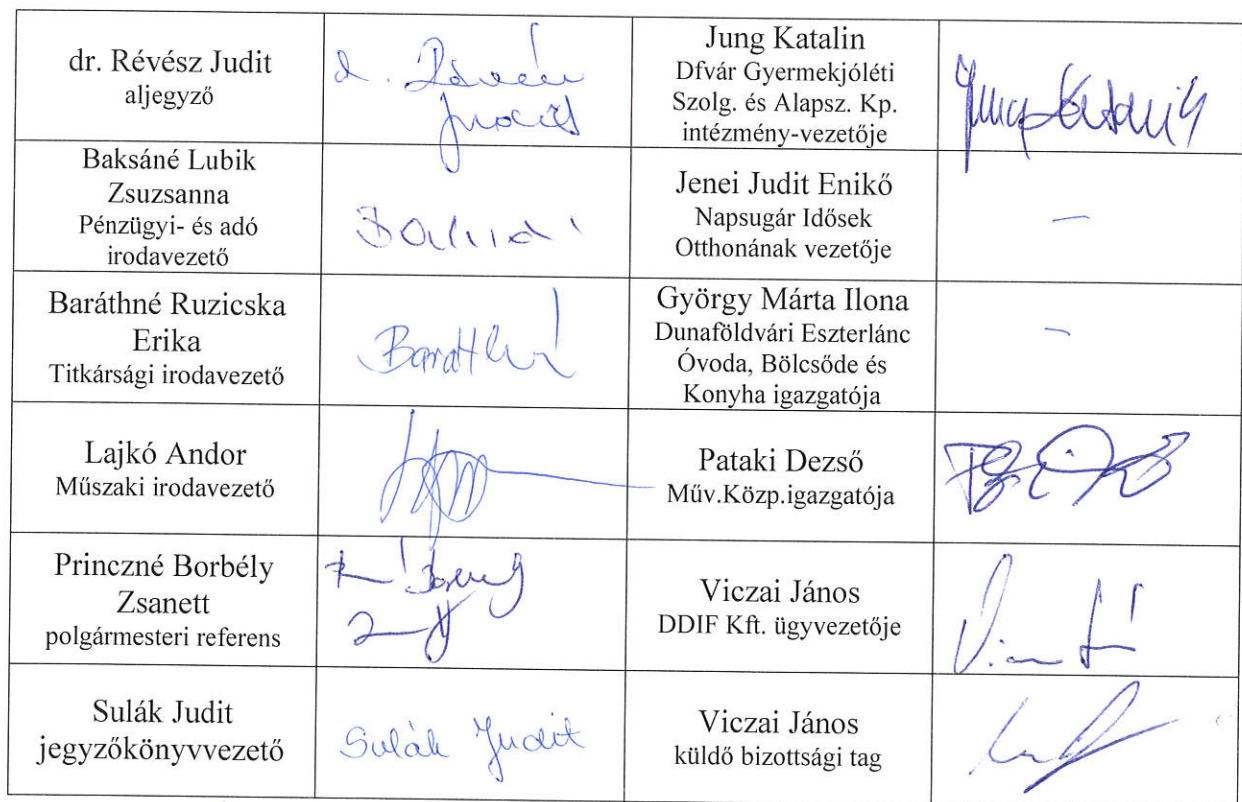 dr. Révész Judit
aljegyző
d. Révész
Judit
Jung Katalin
Dfvár Gyermekjóléti
Szolg. és Alapsz. Kp.
intézmény-vezetője
Jung Katalin
Baksáné Lubik
Zsuzsanna
Pénzügyi- és adó
irodavezető
Jenei Judit Enikő
Napsugár Idősek
Otthonának vezetője
–
Baráthné Ruzicska
Erika
Titkársági irodavezető
Baráthné
György Márta Ilona
Dunaföldvári Eszterlánc
Óvoda, Bölcsőde és
Konyha igazgatója
–
Lajkó Andor
Műszaki irodavezető
Pataki Dezső
Műv.Közp.igazgatója
Princzné Borbély
Zsanett
polgármesteri referens
Viczai János
DDIF Kft. ügyvezetője
Sulák Judit
jegyzőkönyvvezető
Sulák Judit
Viczai János
küldő bizottsági tag